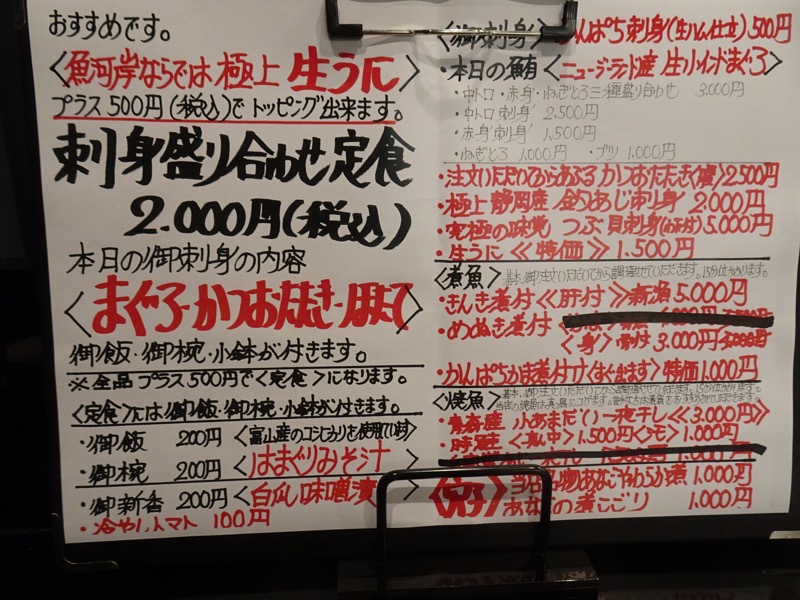 おすすめです。
〈魚河岸ならでは 極上 生うに〉
プラス500円(税込)でトッピング出来ます。
刺身盛り合わせ定食
2.000円(税込)
本日の御刺身の内容
〈まぐろ・かつおたたき・ほたて〉
御飯・御椀・小鉢が付きます。
※全品プラス500円で〈定食〉になります。
〈定食〉には御飯・御椀・小鉢が付きます。
・御飯 200円〈富山産のコシヒカリを使用しています〉
・御椀 200円〈はまぐりみそ汁〉
・御新香 200円〈白瓜味噌漬〉
・冷やしトマト 100円
〈御刺身〉かんぱち刺身(生ハム仕立) 500円
・本日の鮪〈ニュージーランド産 生インドまぐろ〉
・中トロ・赤身・ねぎとろ三種盛り合わせ 3.000円
・中トロ刺身 2.500円
・赤身刺身 1.500円
・ねぎとろ 1.000円 ・ブリ 1.000円
・注文いただいてからあぶる かつおたたき 2.500円
・極上 静岡産 金のあじ刺身 2.000円
・究極の味覚 つぶ貝刺身 5.000円
・生うに《特価》1.500円
〈煮魚〉基本、御注文いただいてから調理させていただきます。15分位かかります。
・きんき煮付《肝付》新漁 5.000円
・めぬき煮付
〈身〉骨付 3.000円
・かんぱちかま煮付け 特価 1.000円
〈焼魚〉基本、御注文いただいてから調理させていただきます。15分位かかります。
・青森産 小あまだい一夜干し《3.000円》
・時鮭〈真中〉1.500円〈シモ〉1.000円
あなごやわらか煮 1.000円
あなごの煮こごり 1.000円